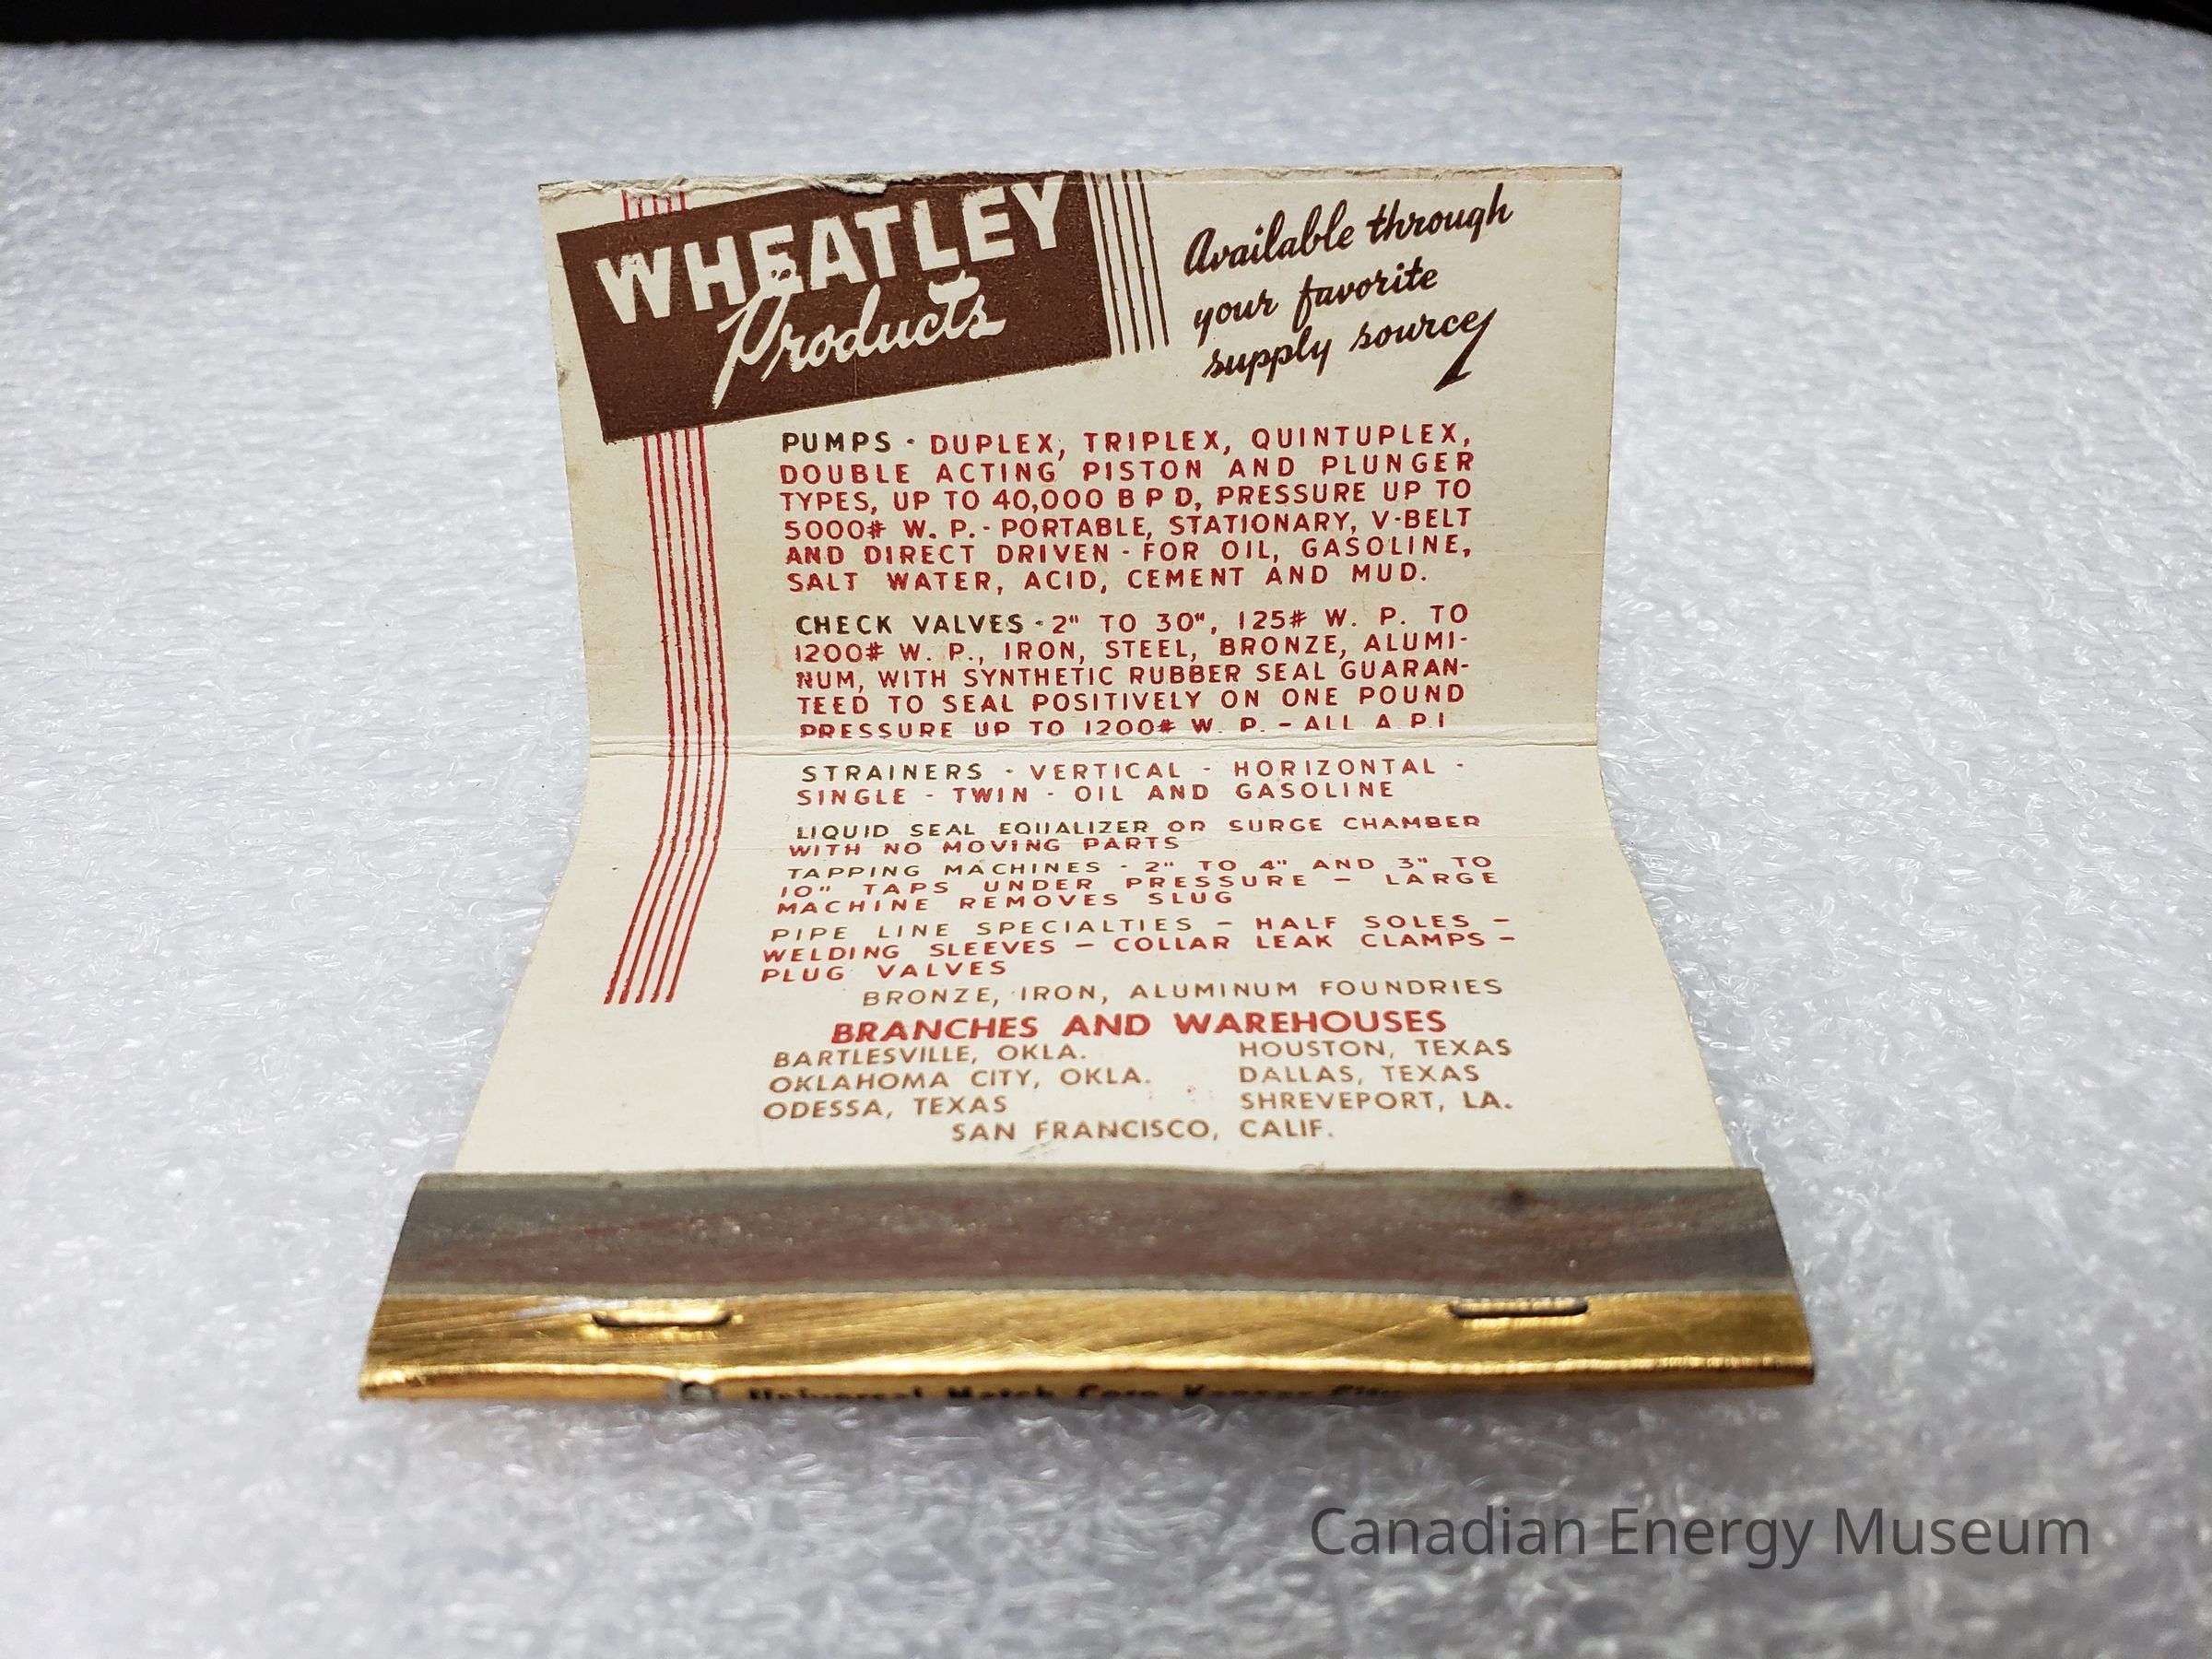 WHEATLEY
Products
Available through
your favorite
supply source
PUMPS - DUPLEX, TRIPLEX, QUINTUPLEX,
DOUBLE ACTING PISTON AND PLUNGER
TYPES, UP TO 40,000 B P D, PRESSURE UP TO
5000# W. P. - PORTABLE, STATIONARY, V-BELT
AND DIRECT DRIVEN - FOR OIL, GASOLINE,
SALT WATER, ACID, CEMENT AND MUD.
CHECK VALVES - 2" TO 30", 125# W. P. TO
1200# W. P., IRON, STEEL, BRONZE, ALUMI-
NUM, WITH SYNTHETIC RUBBER SEAL GUARAN-
TEED TO SEAL POSITIVELY ON ONE POUND
PRESSURE UP TO 1200# W. P. - ALL A P I
STRAINERS - VERTICAL - HORIZONTAL -
SINGLE - TWIN - OIL AND GASOLINE
LIQUID SEAL EQUALIZER OR SURGE CHAMBER
WITH NO MOVING PARTS
TAPPING MACHINES - 2" TO 4" AND 3" TO
10" TAPS UNDER PRESSURE — LARGE
MACHINE REMOVES SLUG
PIPE LINE SPECIALTIES — HALF SOLES —
WELDING SLEEVES — COLLAR LEAK CLAMPS —
PLUG VALVES
BRONZE, IRON, ALUMINUM FOUNDRIES
BRANCHES AND WAREHOUSES
BARTLESVILLE, OKLA. HOUSTON, TEXAS
OKLAHOMA CITY, OKLA. DALLAS, TEXAS
ODESSA, TEXAS SHREVEPORT, LA.
SAN FRANCISCO, CALIF.
Universal Match Corp Kansas City
Canadian Energy Museum